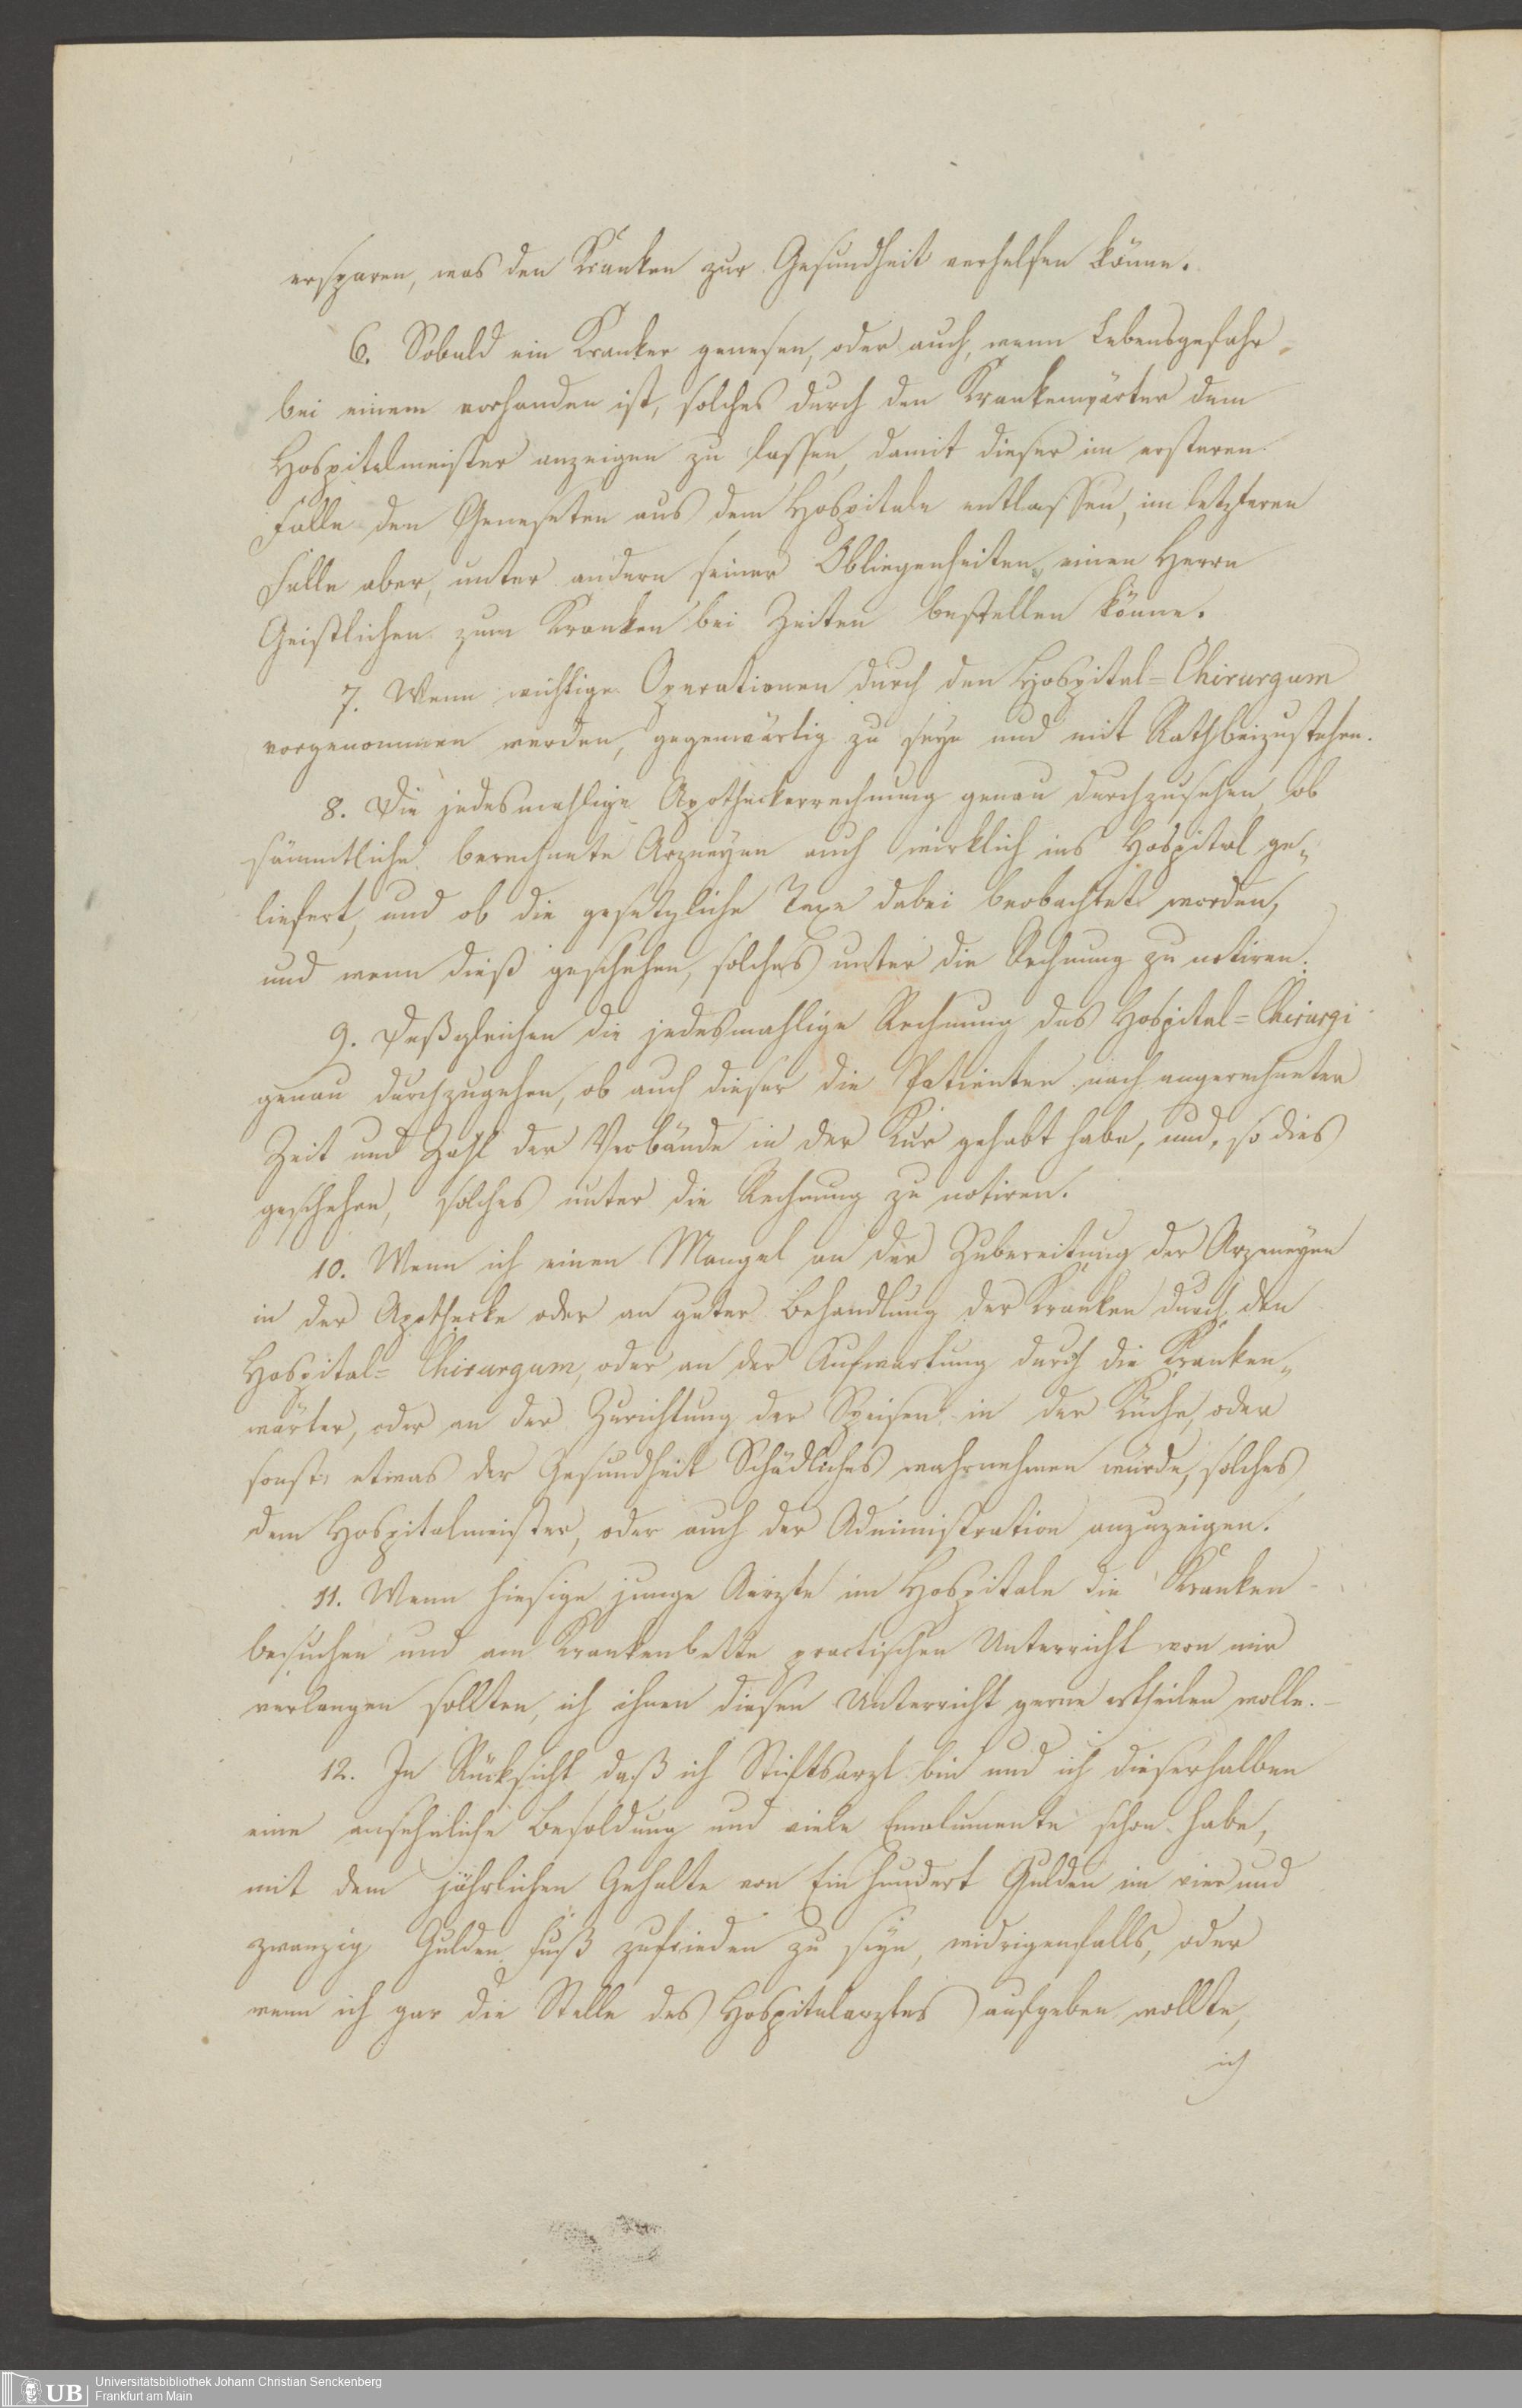 ersparen, was den Kranken zur Gesundheit verhelfen könne.
6. Sobald ein Kranker genesen, oder auch, wenn Lebensgefahr
bei einem vorhanden ist, solches durch den Krankenwärter dem
Hospitalmeister anzeigen zu lassen, damit dieser im ersteren
Falle den Geneseten aus dem Hospitale entlassen, im letzteren
Falle aber, unter andern seiner Obliegenheiten, einen Herrn
Geistlichen zum Kranken bei Zeiten bestellen könne.
7. Wenn wichtige Operationen durch den Hospital=Chirurgum
vorgenommen werden, gegenwärtig zu seyn und mit Rath beizustehen.
8. Die jedesmahlige Apotheckerrechnung genau durchzusehen, ob
sämmtliche berechnete Arzneyen auch wirklich ins Hospital ge„
liefert, und ob die gesetzliche Taxe dabei beobachtet worden,
und wenn dieß geschehen, solches unter die Rechnung zu notiren.
9. Deßgleichen die jedesmahlige Rechnung des Hospital=Chirurgi
genau durchzugehen, ob auch dieser die Patienten nach angerechneter
Zeit und Zahl der Verbände in der Kur gehabt habe, und, so dies
geschehen, solches unter die Rechnung zu notiren.
10. Wenn ich einen Mangel an der Zubereitung der Arzneyen
in der Apothecke oder an guter Behandlung der Kranken durch den
Hospital=Chirurgum, oder an der Aufwartung durch die Kranken„
wärter, oder an der Zurichtung der Speisen in der Küche, oder
sonst etwas der Gesundheit Schädliches wahrnehmen würde, solches
dem Hospitalmeister, oder auch der Administration anzuzeigen.
11. Wenn hiesige junge Aerzte im Hospitale die Kranken
besuchen und am Krankenbette practischen Unterricht von mir
verlangen sollten, ich ihnen diesen Unterricht gerne ertheilen wolle.
12. In Rücksicht daß ich Stiftsarzt bin und ich dieserhalben
eine ansehnliche Besoldung und viele Emolumente schon habe,
mit dem jährlichen Gehalte von Ein hundert Gulden im vier und
zwanzig Gulden Fuß zufrieden zu seyn, widrigenfalls, oder
wenn ich gar die Stelle des Hospitalarztes aufgeben wollte,
ich
UB
Universitätsbibliothek Johann Christian Senckenberg
Frankfurt am Main